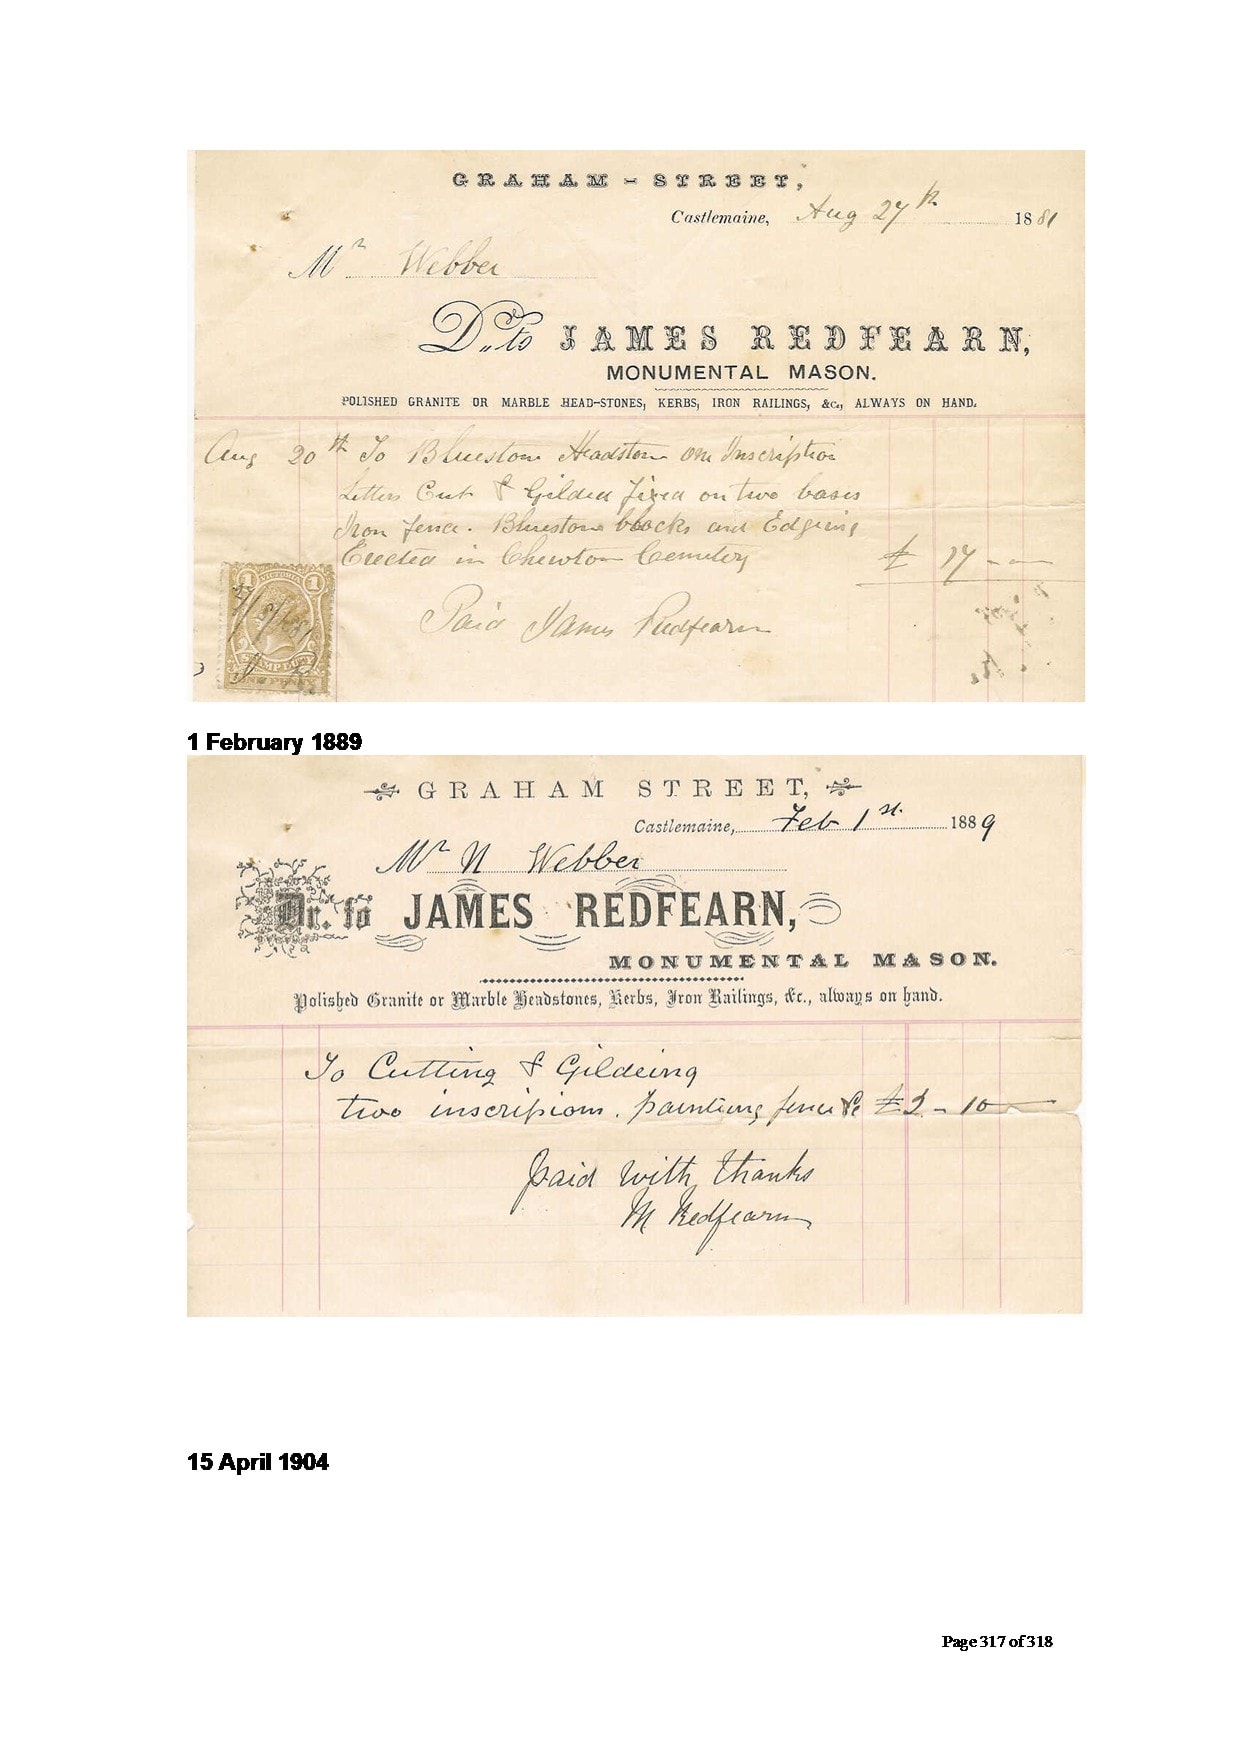 GRAHAM - STREET,
Castlemaine, Aug 27th 1881
Mr Webber
Dr. to JAMES REDFEARN,
MONUMENTAL MASON.
POLISHED GRANITE OR MARBLE HEAD-STONES, KERBS, IRON RAILINGS, &c., ALWAYS ON HAND.
Aug 20th To Bluestone Headstone one Inscription
Letters Cut & Gilded fixed on two bases
Iron fence. Bluestone blocks and Edgeing
Erected in Chewton Cemetery £ 17 - -
Paid James Redfearn
1 VICTORIA 1
STAMP DUTY
ONE PENNY
1 February 1889
GRAHAM STREET,
Castlemaine, Feb 1st. 1889
Mr N Webber
Dr. to JAMES REDFEARN,
MONUMENTAL MASON.
Polished Granite or Marble Headstones, Kerbs, Iron Railings, &c., always on hand.
To Cutting & Gildeing
two inscripions. painting fence &c £3 - 10
Paid with thanks
M Redfearn
15 April 1904
Page 317 of 318